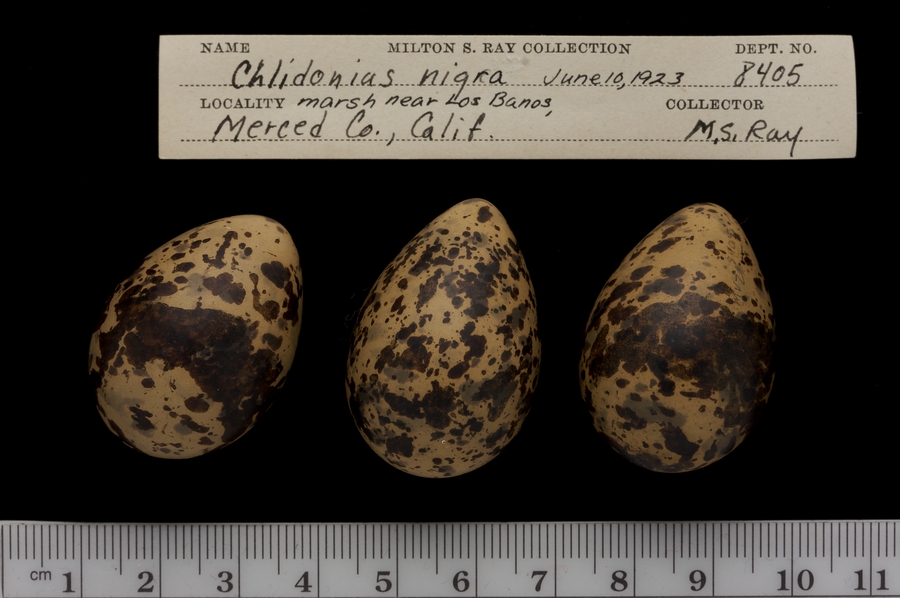 NAME MILTON S. RAY COLLECTION DEPT. NO.
Chlidonias nigra June 10, 1923 8405
LOCALITY marsh near Los Banos, COLLECTOR
Merced Co., Calif. M.S. Ray
cm 1 2 3 4 5 6 7 8 9 10 11